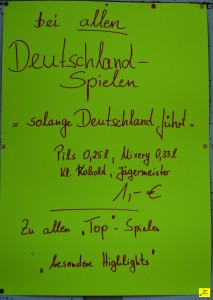 bei allen
Deutschland-
Spielen
= solange Deutschland führt =
Pils 0,25l, Mixery 0,33l
Kl. Kobold, Jägermeister
1,- €
Zu allen „Top"- Spielen
„besondere Highlights"